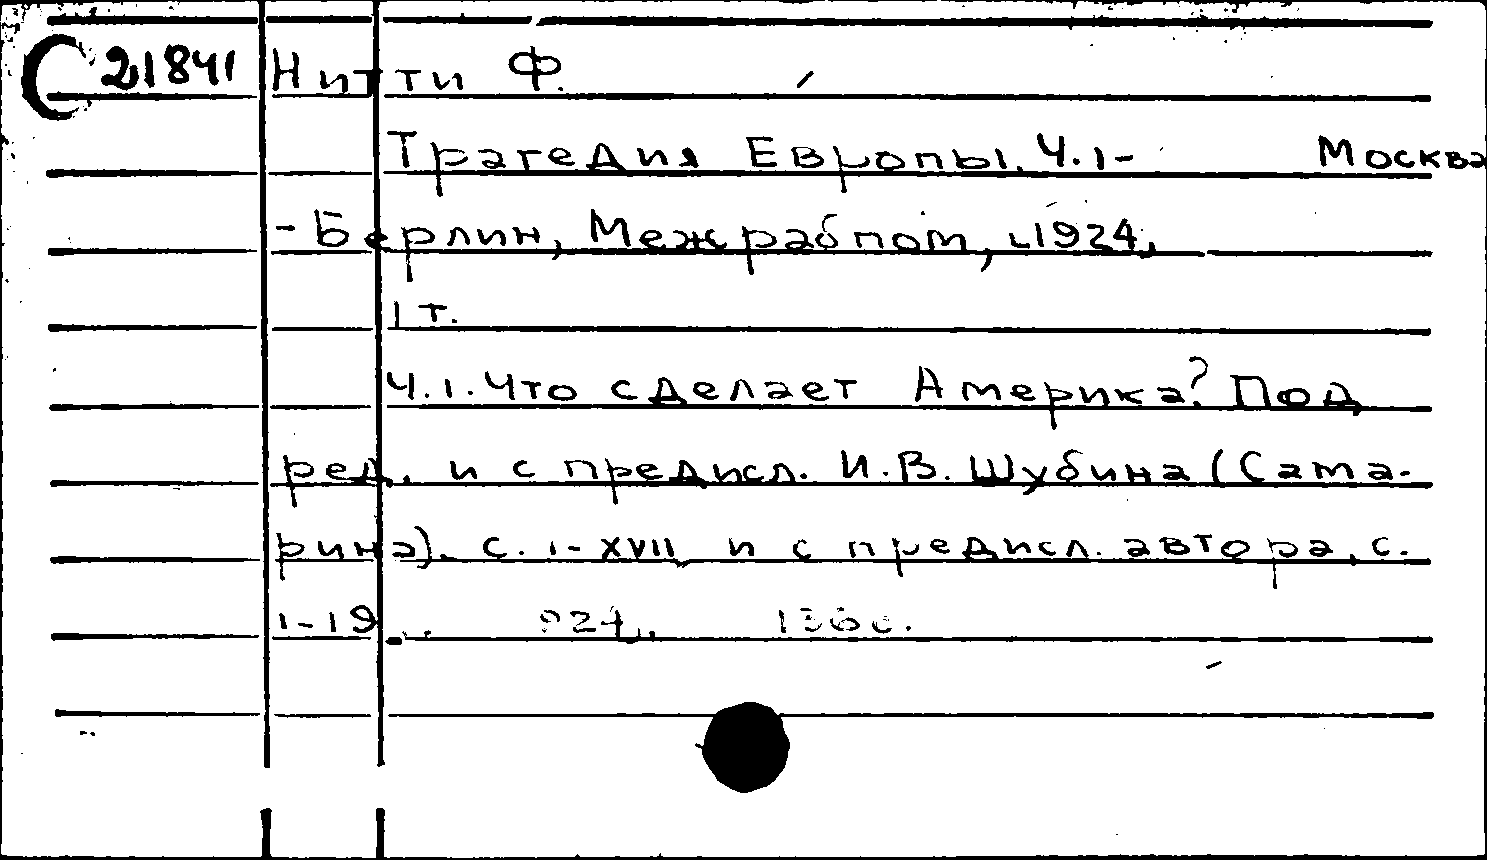 С 21841 Нитти Ф.
Трагедия Европы. Ч.1- Москва
-Берлин, Межрабпом, 1924,
1 т.
Ч.1. Что сделает Америка? Под
ред. и с предисл. И.В. Шубина (Сама-
рина). с. 1-XVII и с предисл. автора, с.
1-19. 924, 136с.